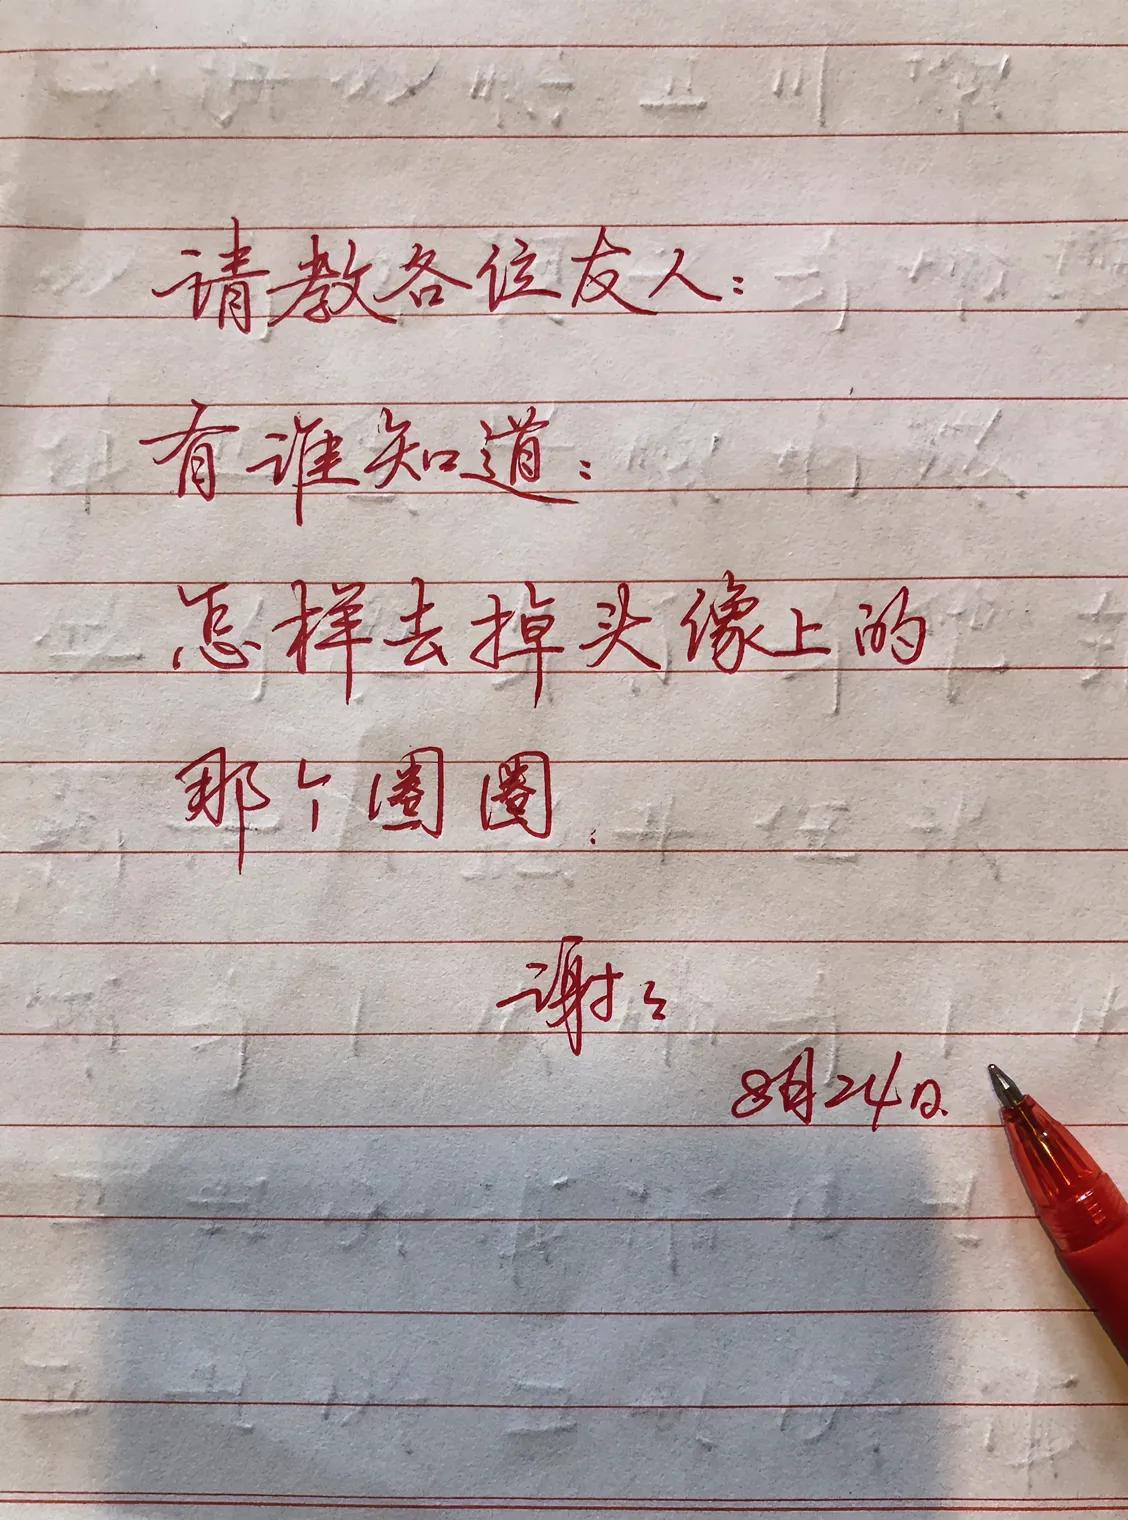 请教各位友人：
有谁知道：
怎样去掉头像上的
那个圈圈.
谢〻
8月24日.